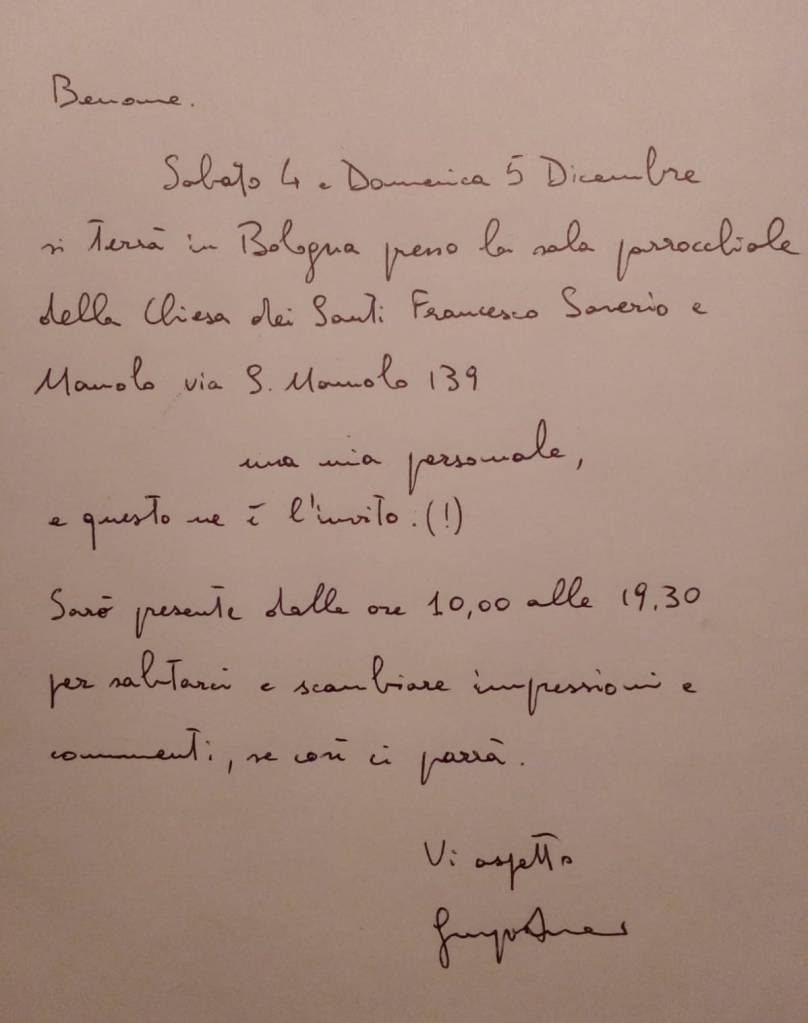 Benone.
Sabato 4 e Domenica 5 Dicembre
si terrà in Bologna presso la sala parrocchiale
della Chiesa dei Santi Francesco Saverio e
Mamolo via S. Mamolo 139
una mia personale,
e questo ne è l'invito. (!)
Sarò presente dalle ore 10,00 alle 19.30
per salutarci e scambiare impressioni e
commenti, se così ci parrà.
Vi aspetto